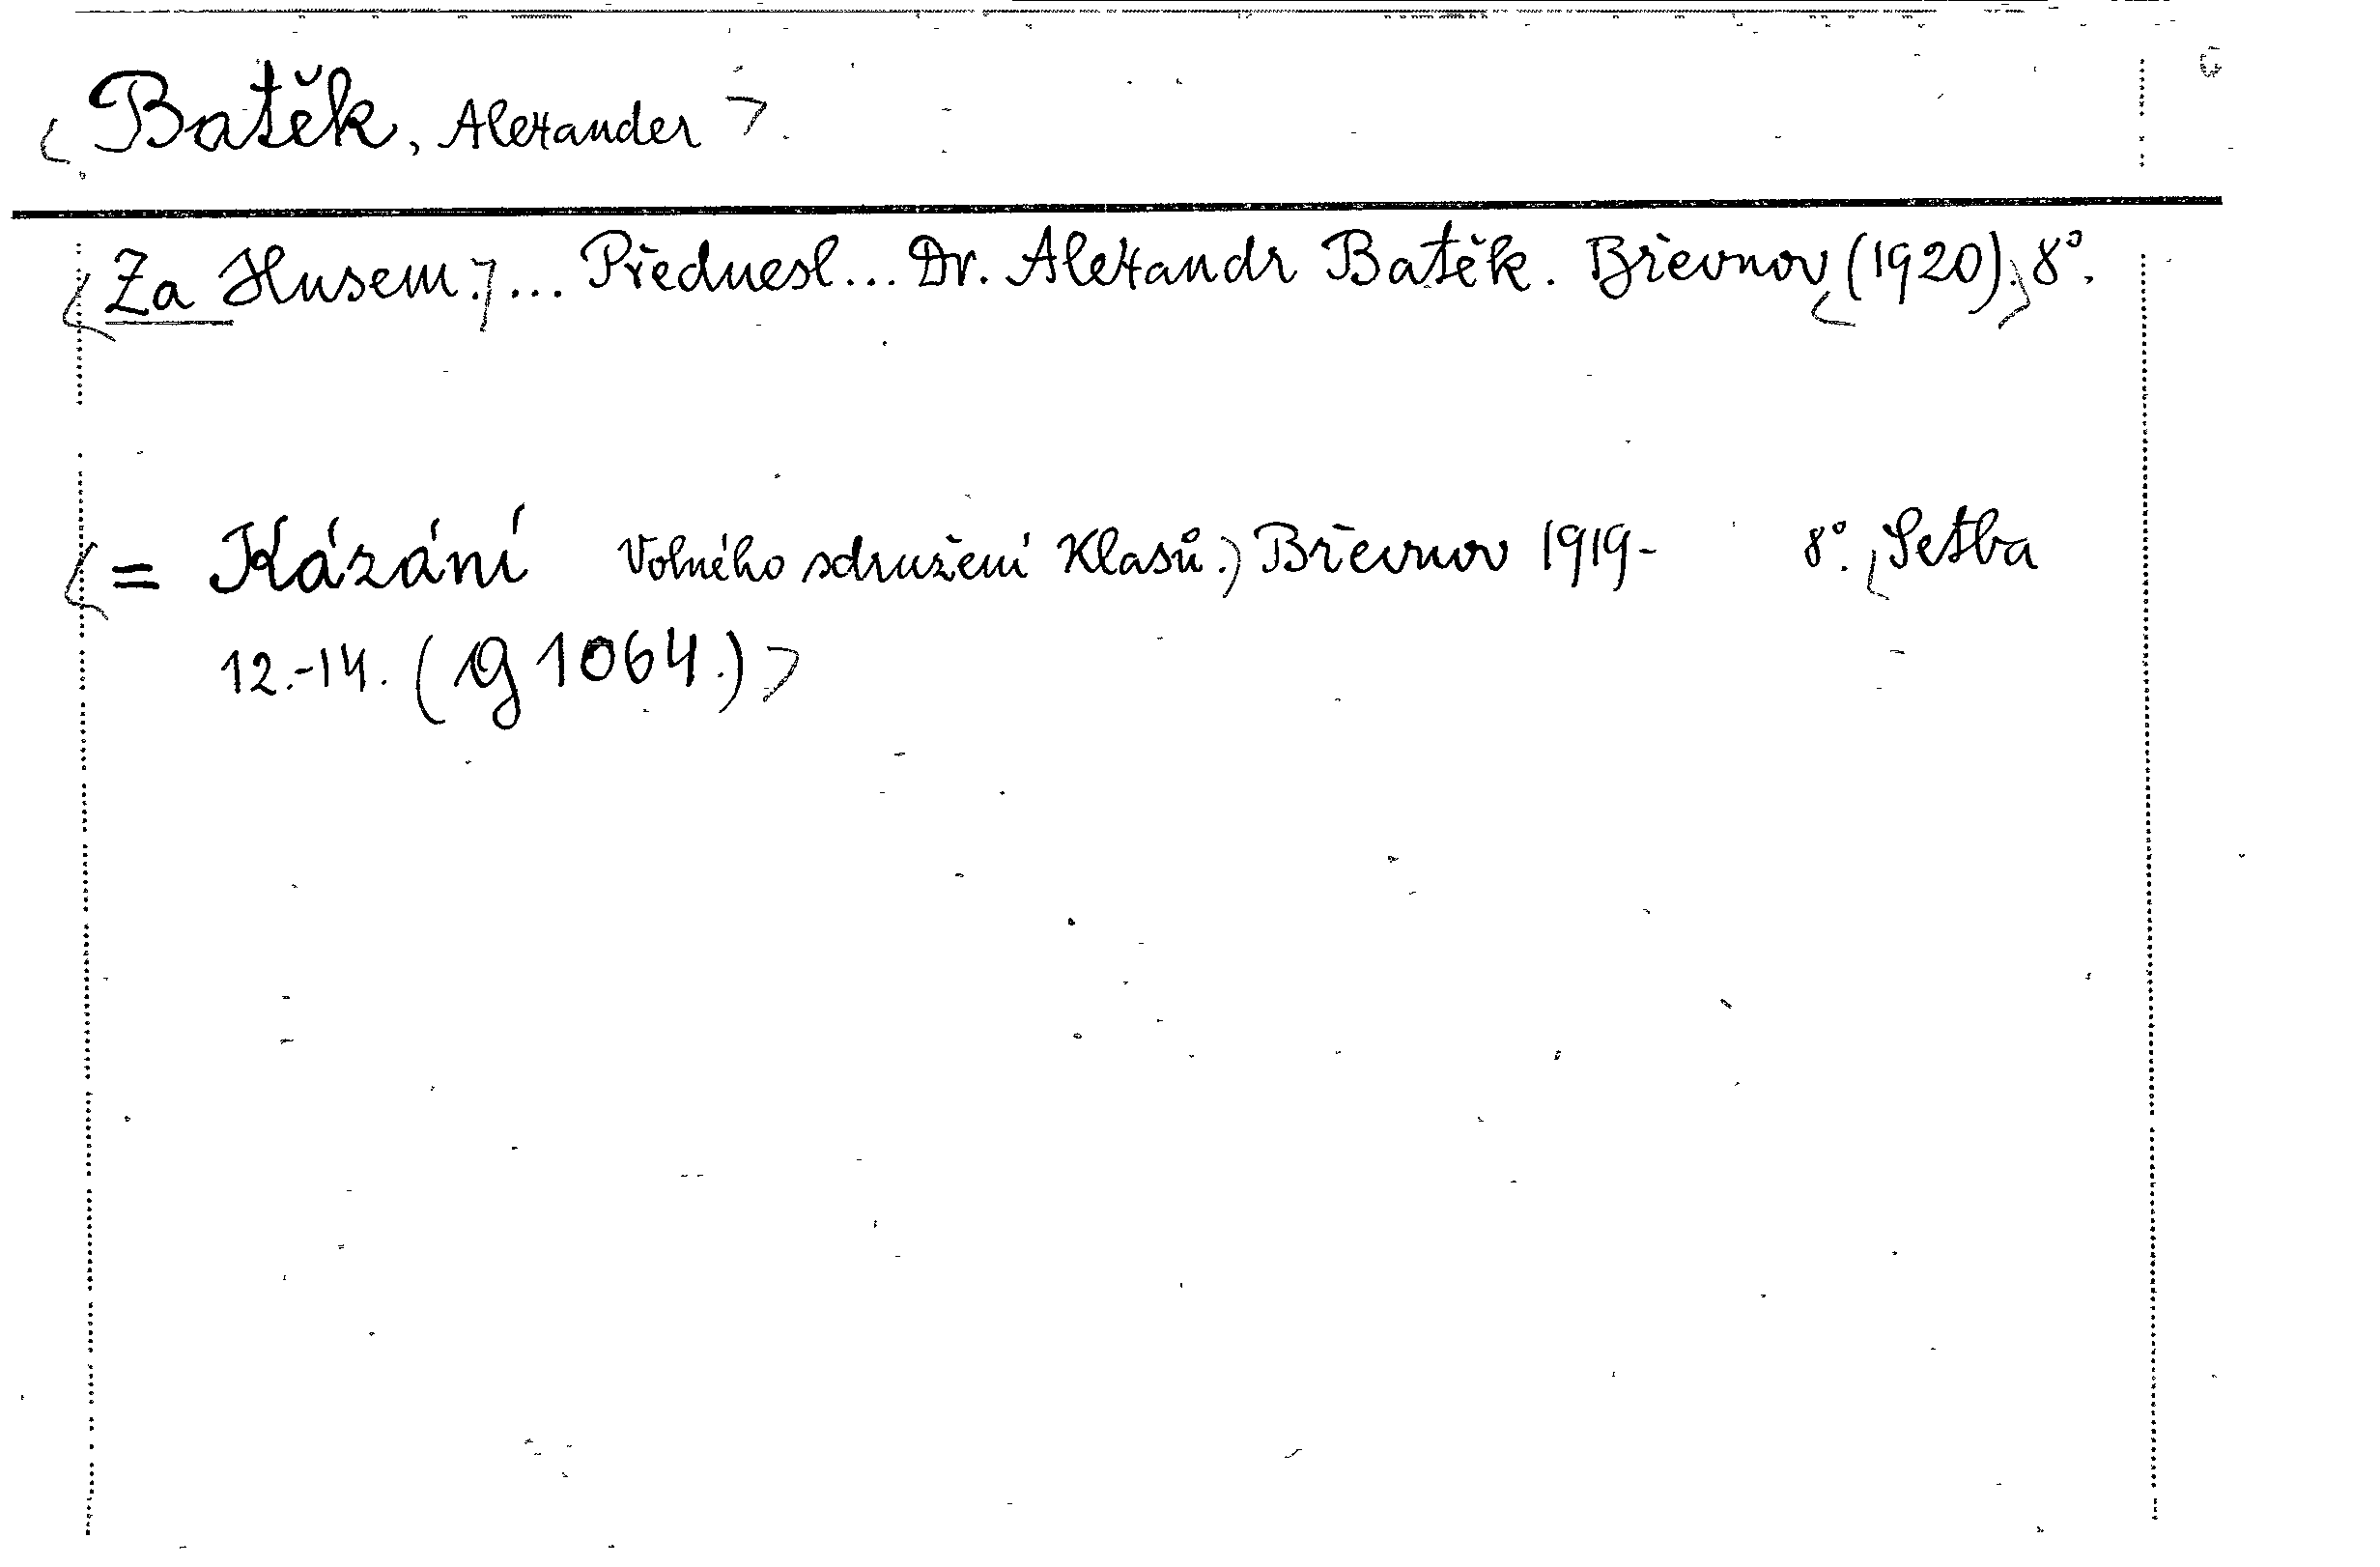 Batěk, Alexander
Za Husem. ... Přednesl... Dr. Alexandr Batěk. Břevnov (1920). 8°.
= Kázání Volného sdružení Klasů. Břevnov 1919- 8°. Setba
12.-14. (G 1064.)